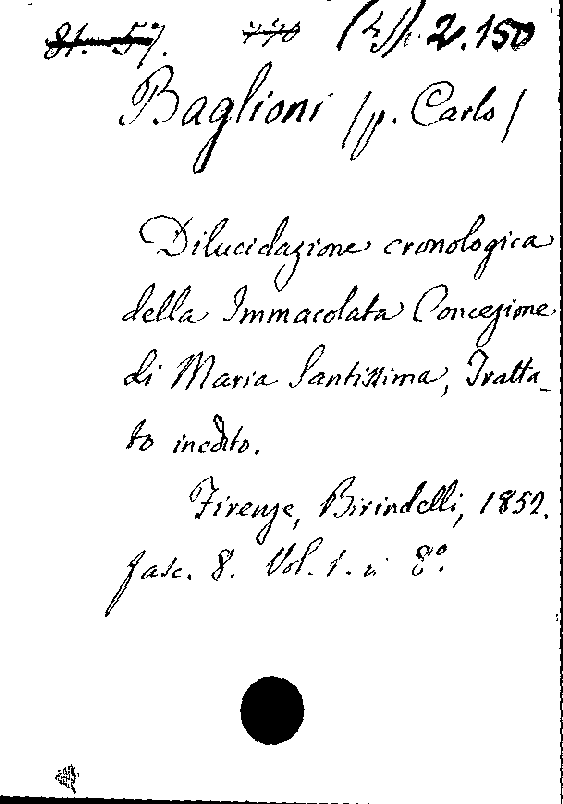 81. 57. 770 2.150
Baglioni /p. Carlo/
Dilucidazione cronologica
della Immacolata Concezione
di Maria Santissima, Tratta_
to inedito.
Firenze, Birindelli, 1852.
fasc. 8. Vol. 1. in 8º